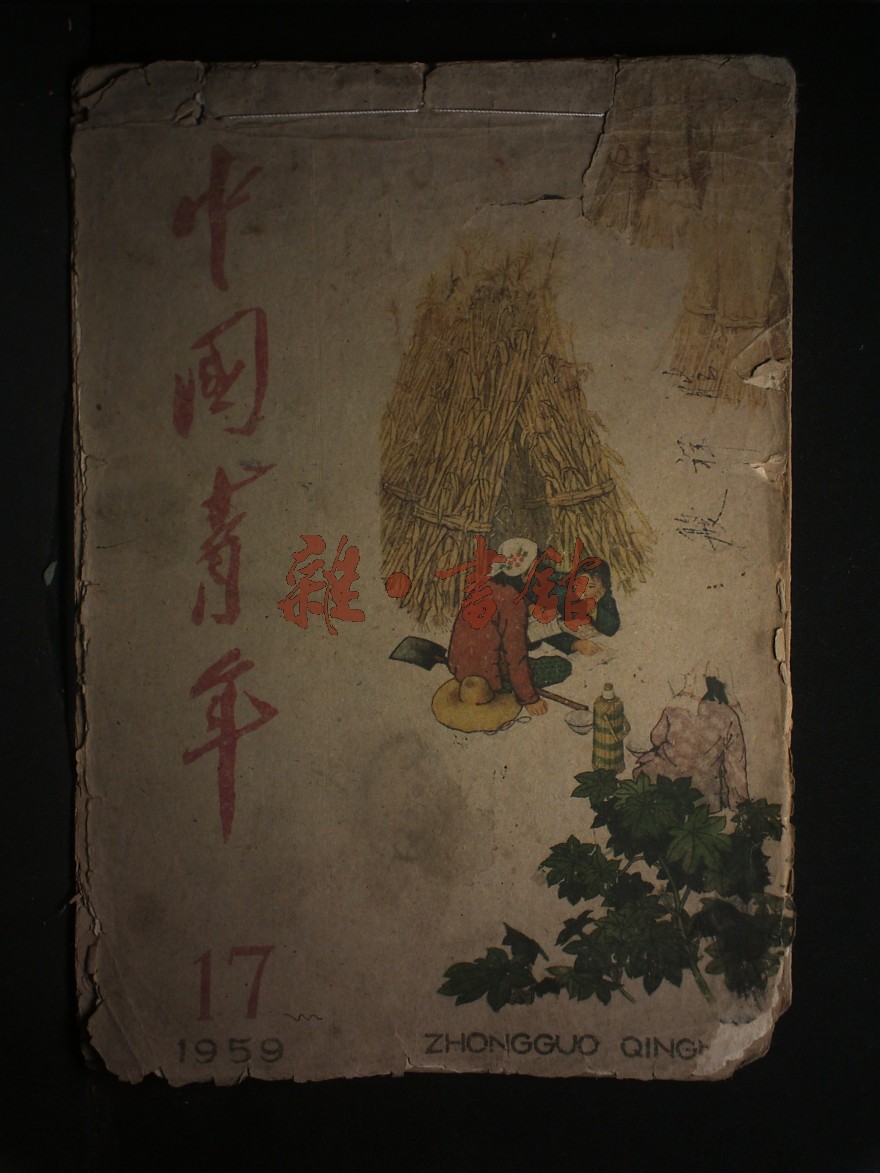 中国青年
雜·書館
17
1959
ZHONGGUO QING